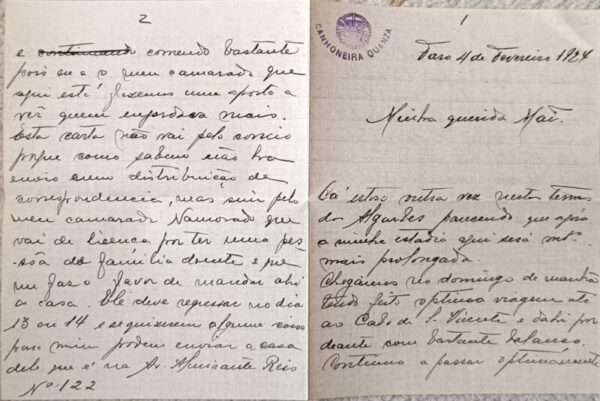 1
CANHONEIRA QUANZA
Faro 4 de Fevereiro 1924
Minha querida Mãi.
Cá estou outra vez nestas terras
dos Algarves parecendo que agora
a minha estadia aqui será mto
mais prolongada.
Chegámos no domingo de manhã
tendo feito optima viagem até
ao Cabo de S. Vicente e dahi por
deante com bastante balanço.
Continuo a passar optimamente
2
e continuando comendo bastante
pois eu e o meu camarada que
aqui está fizemos uma aposta a
vêr quem engordava mais.
Esta carta não vai pelo correio
porque como sabem não ha
envio nem distribuição de
correspondencia, mas sim pelo
meu camarada Namorado que
vai de licença por ter uma pes-
sôa de familia doente e que
me faz o favor de mandar ahi
a casa. Ele deve regressar no dia
13 ou 14 e se quiserem alguma coisa
para mim podem enviar a casa
dele que é na Av. Almirante Reis
No 122